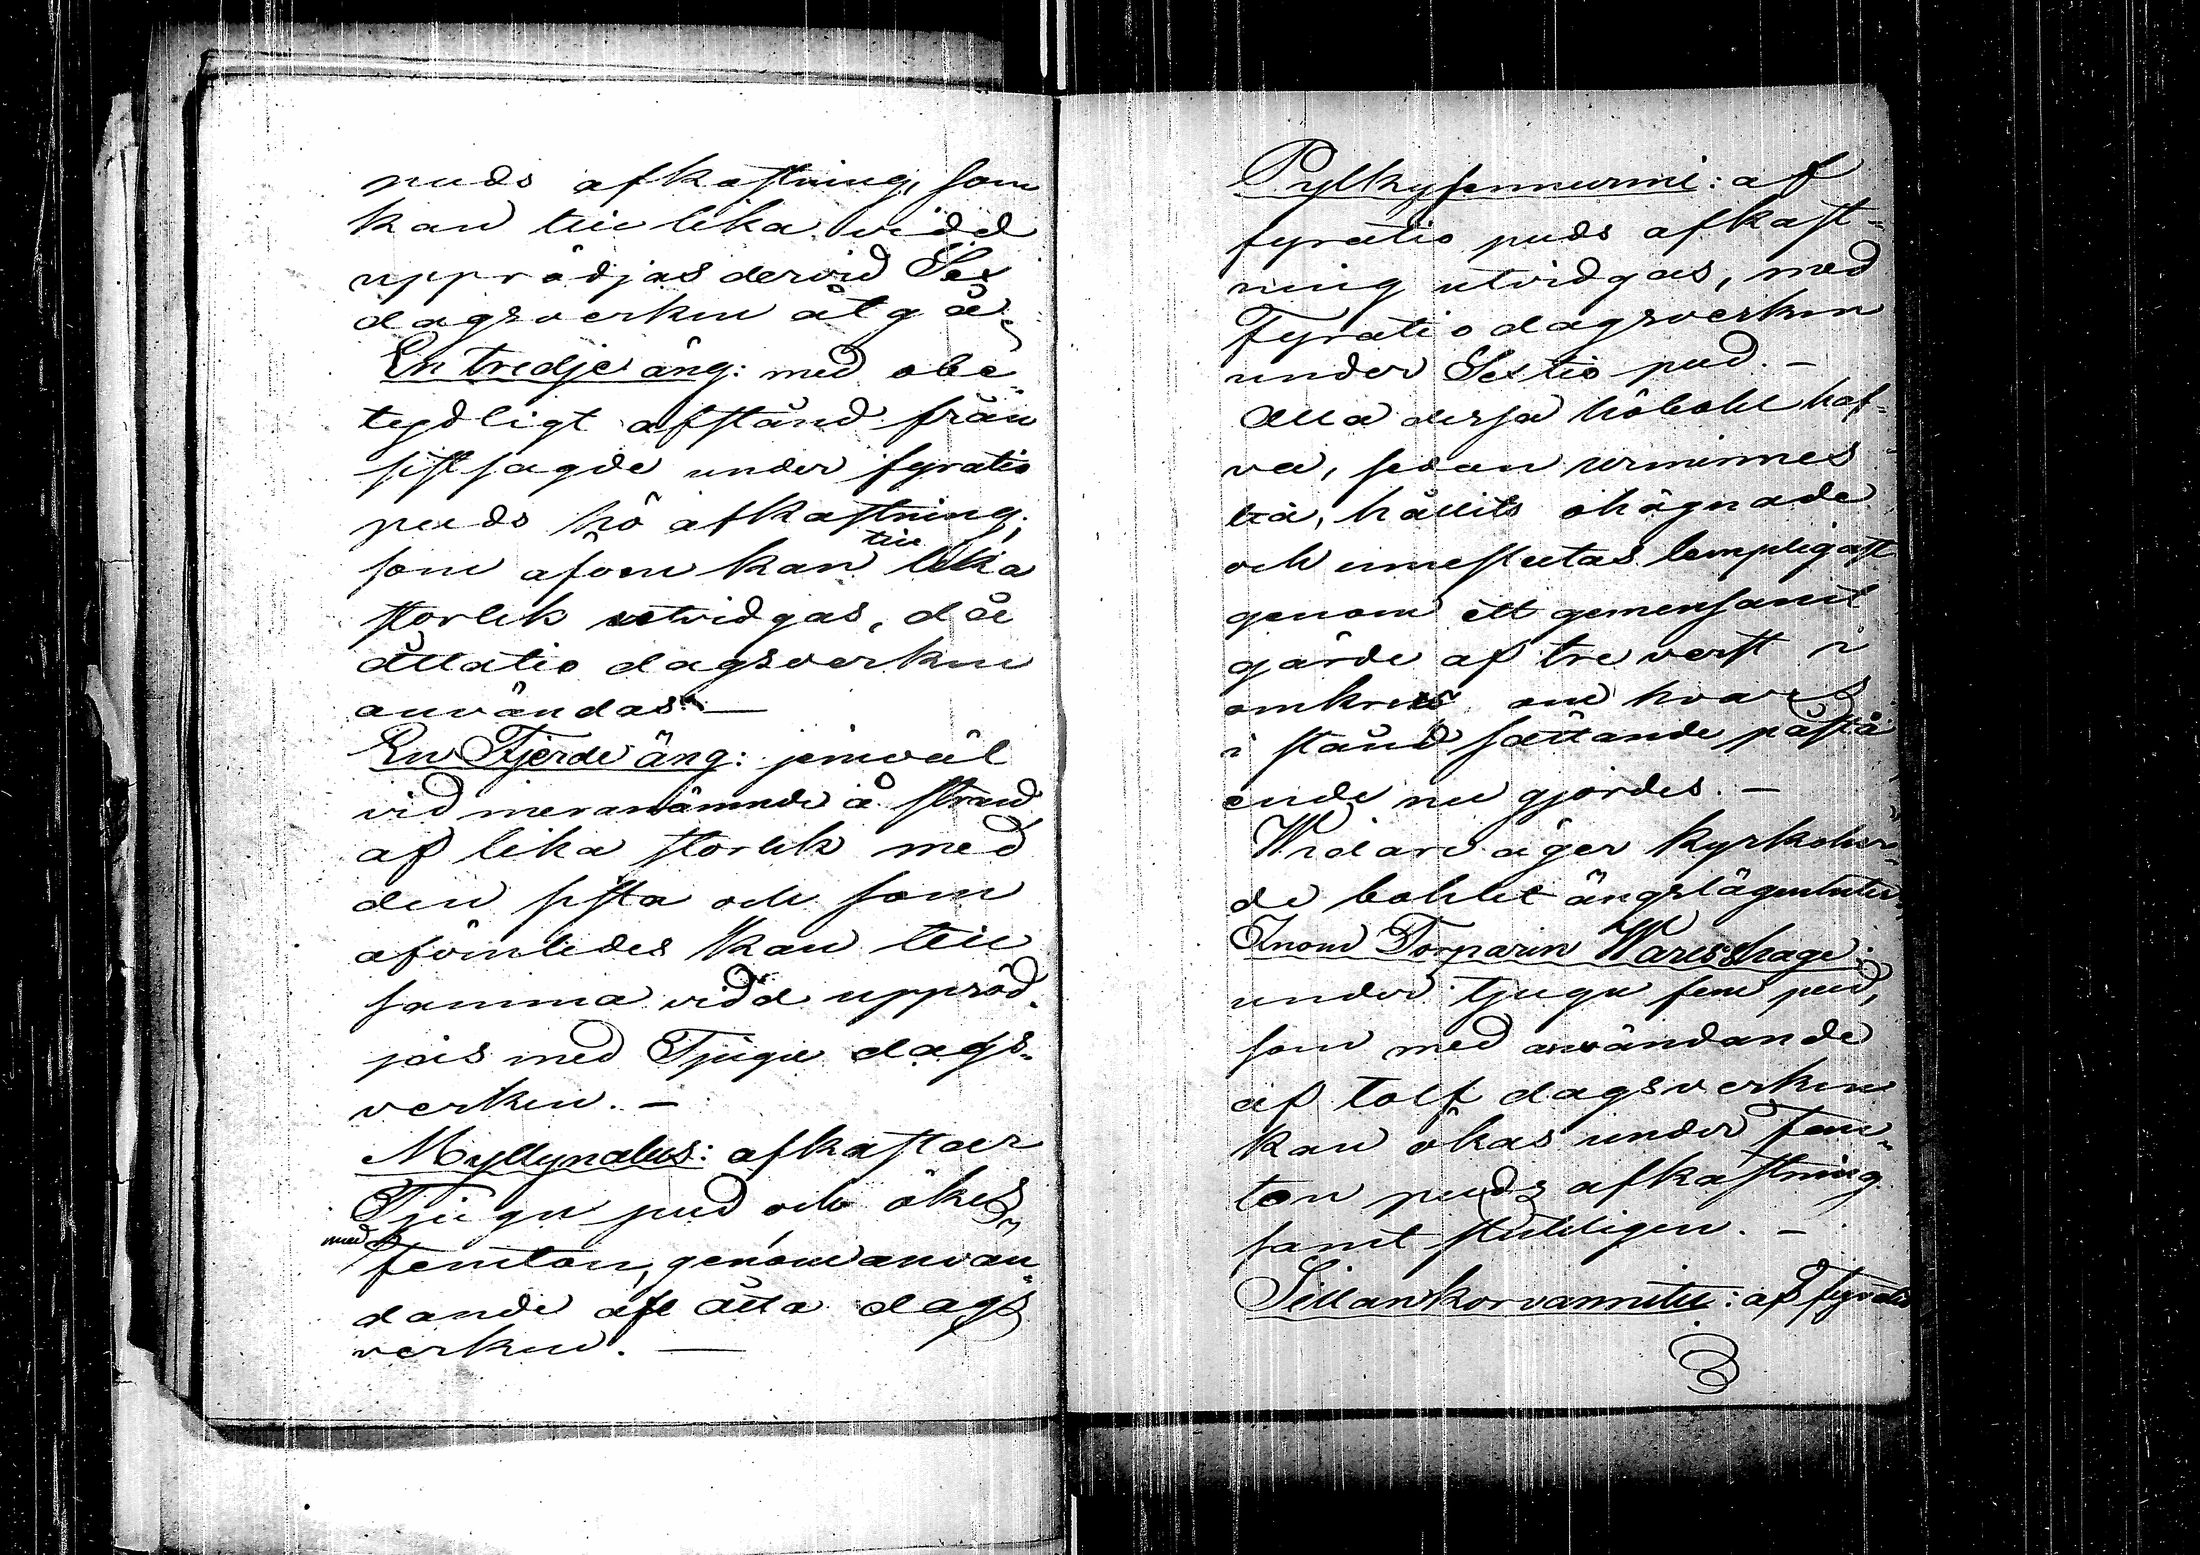 puds afkastning, som
kan till lika vidd
upprödjas dervid Sex
dagsverken åtgå.
En tredje äng: med obe-
tydligt afstånd från
sistsagde under fyratio
puds hö afkastning,
som äfven kan till lika
storlek utvidgas, då
åttatio dagsverken
användas. —
En Fjerde äng: jemväl
vid meranämnde å strand
af lika storlek med
den sista och som
äfvenledes kan till
samma vidd uppröd-
jas med Tjugu dags-
verken. —
Myllynalus: afkastar
Tjugu pud och ökes
med Femton, genom använ-
dande af åtta dags
verken. —
Pylkysennurmi: af
fyratio puds afkast-
ning utvidgas, med
Fyratio dagsverken
under Sextio pud. —
Alla dessa höbohl haf-
va, sedan urminnes
tid, hållits ohägnade
och inneslutas lämpligast
genom ett gemensamt
gärde af tre verst i
omkrets om hvars
i stånd sättande påstå
ende nu gjordes. —
Widare äger kyrkoher-
de bohlet ängslägenheter
Inom Torparen Wares hage:
under tjugu fem pud,
som med användande
af tolf dagsverken
kan ökas under Fem-
ton puds afkastning
samt
Sillankorvanniitu: af fyratio